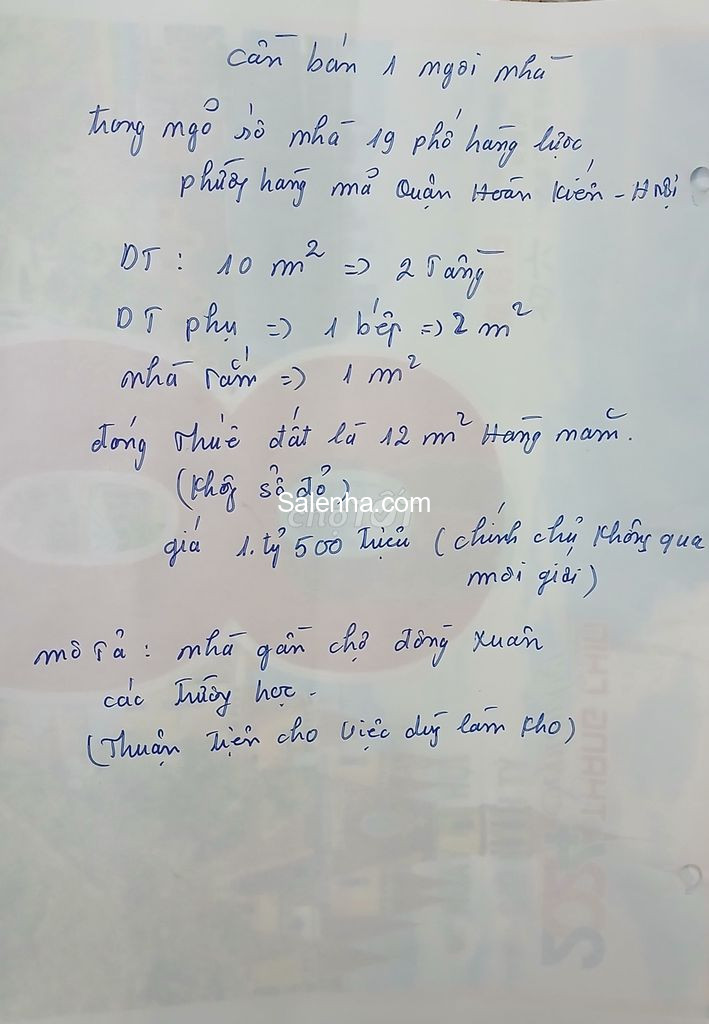 Cần bán 1 ngôi nhà
trong ngõ số nhà 19 phố hàng lược
phường hàng mã Quận Hoàn Kiếm - H Nội
DT : 10 m² => 2 Tầng
DT phụ => 1 bếp => 2 m²
nhà Tắm => 1 m²
đóng Thuế đất là 12 m² Hàng năm.
(Không sổ đỏ)
Salenha.com
chợ Tốt
giá 1. tỷ 500 Triệu (chính chủ không qua
môi giới)
mô Tả : nhà gần chợ đồng xuân
các Trường học.
(Thuận Tiện cho việc dùng làm kho)